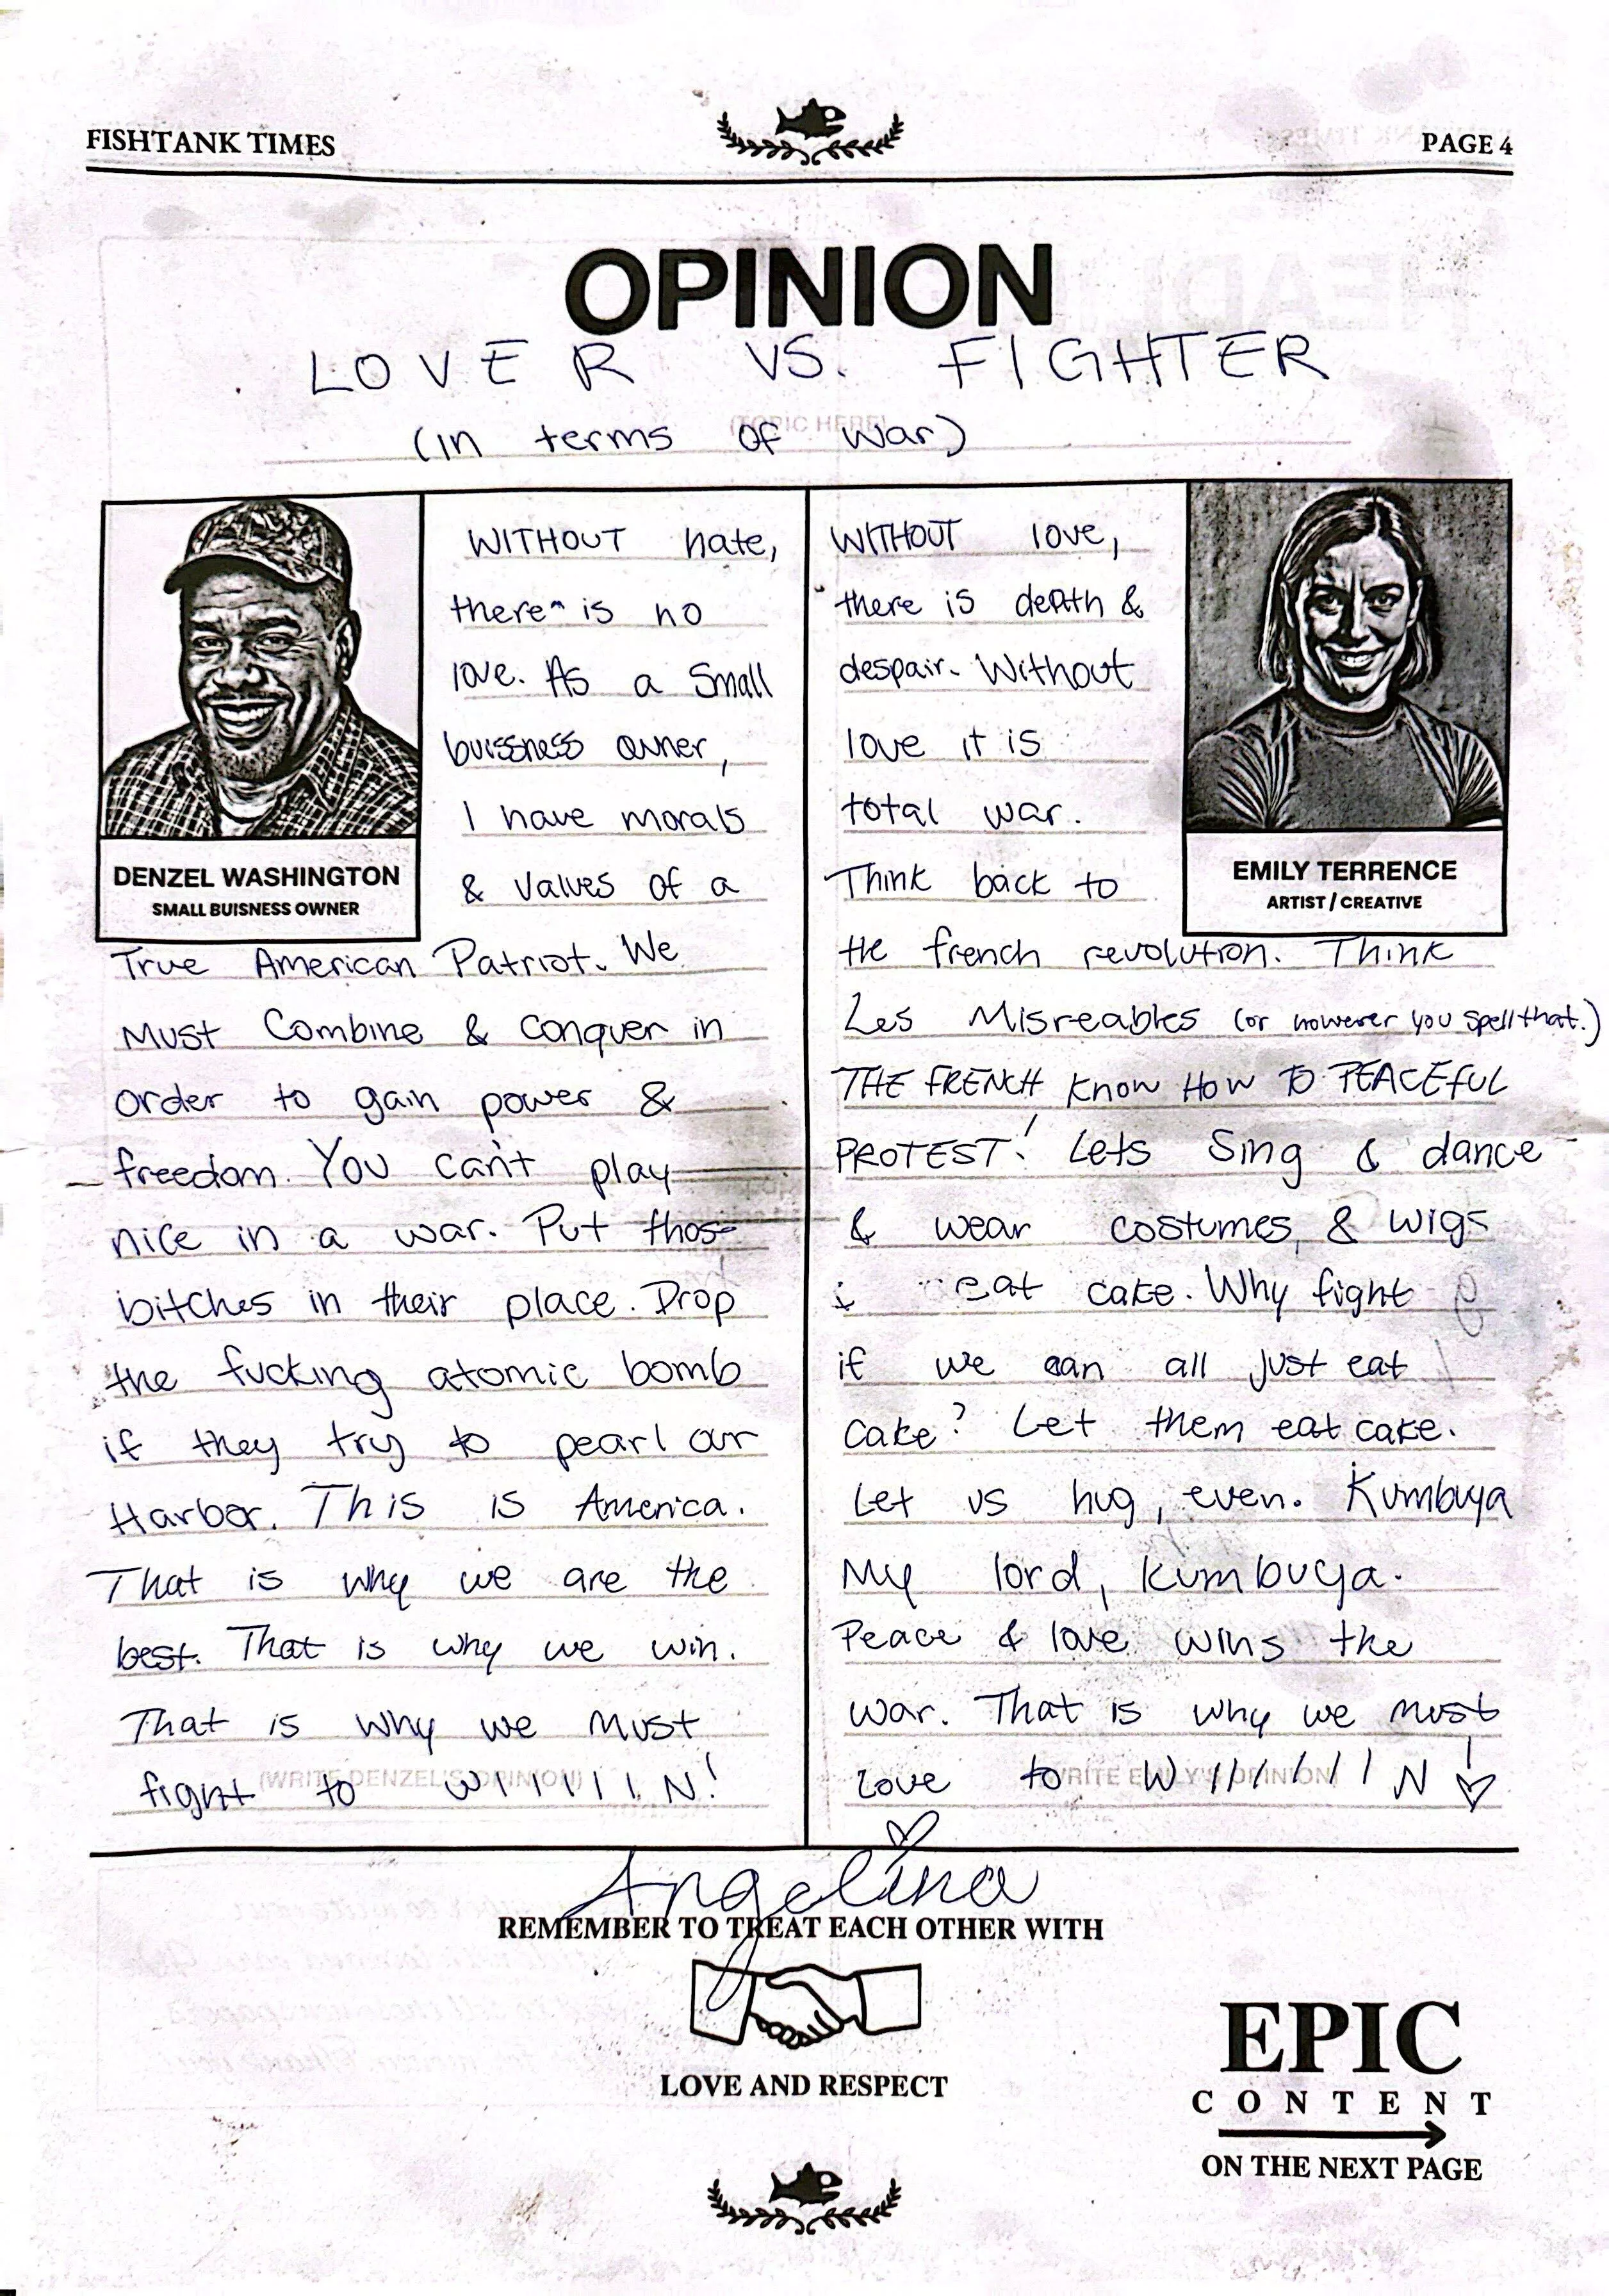 FISHTANK TIMES
PAGE 4
OPINION
LOVER VS. FIGHTER
(TOPIC HERE)
(in terms of war)
WITHOUT hate,
there is no
love. As a small
buissness owner,
I have morals
& values of a
DENZEL WASHINGTON
SMALL BUISNESS OWNER
True American Patriot. We
Must Combine & Conquer in
order to gain power &
freedom. You can't play
nice in a war. Put those
bitches in their place. Drop
the fucking atomic bomb
if they try to pearl our
Harbor. This is America.
That is why we are the
best. That is why we win.
That is why we must
fight to WIIIIIIN!
(WRITE DENZEL'S OPINION)
WITHOUT love,
there is death &
despair. Without
love it is
total war.
Think back to
EMILY TERRENCE
ARTIST / CREATIVE
the french revolution. Think
Les Misreables (or however you spell that.)
THE FRENCH Know HOW TO PEACEFUL
PROTEST! Lets Sing & dance
& wear costumes, & wigs
eat cake. Why fight
if we can all just eat
cake? Let them eat cake.
Let us hug, even. Kumbuya
My lord, kumbuya.
Peace & love wins the
war. That is why we must
love to WIIIIIIIN!
(WRITE EMILY'S OPINION)
Angelina
REMEMBER TO TREAT EACH OTHER WITH
LOVE AND RESPECT
EPIC
CONTENT
ON THE NEXT PAGE